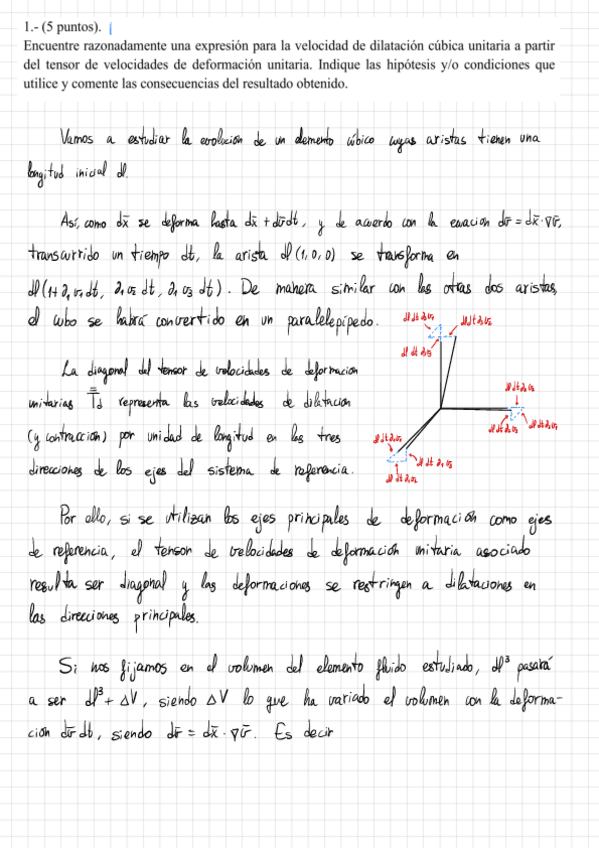 1.- (5 puntos).
Encuentre razonadamente una expresión para la velocidad de dilatación cúbica unitaria a partir
del tensor de velocidades de deformación unitaria. Indique las hipótesis y/o condiciones que
utilice y comente las consecuencias del resultado obtenido.
Vamos a estudiar la evolución de un elemento cúbico cuyas aristas tienen una
longitud inicial dl.
Así, como dx̄ se deforma hasta dx̄ + dv̄dt, y de acuerdo con la ecuación dv̄ = dx̄ · ∇v̄,
transcurrido un tiempo dt, la arista dl (1, 0, 0) se transforma en
dl (1+ ∂₁ v₁ dt, ∂₁ v₂ dt, ∂₁ v₃ dt). De manera similar con las otras dos aristas,
el cubo se habrá convertido en un paralelepípedo.
La diagonal del tensor de velocidades de deformación
unitarias T̿d representa las velocidades de dilatación
(y contracción) por unidad de longitud en las tres
direcciones de los ejes del sistema de referencia.
Por ello, si se utilizan los ejes principales de deformación como ejes
de referencia, el tensor de velocidades de deformación unitaria asociado
resulta ser diagonal y las deformaciones se restringen a dilataciones en
las direcciones principales.
Si nos fijamos en el volumen del elemento fluido estudiado, dl³ pasará
a ser dl³ + ΔV, siendo ΔV lo que ha variado el volumen con la deforma-
ción dv̄ dt, siendo dv̄ = dx̄ · ∇v̄. Es decir